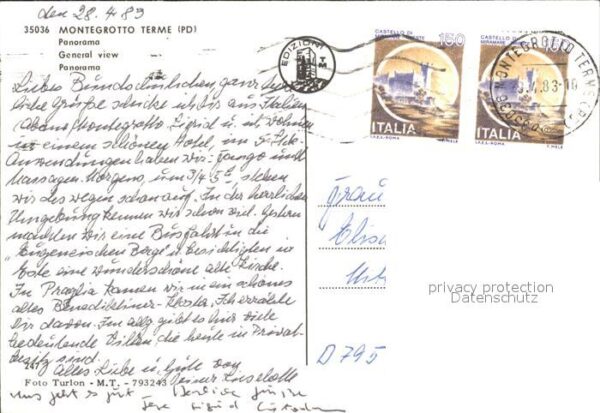 den 28.4.83
35036 MONTEGROTTO TERME (PD)
Panorama
General view
Panorama
EDIZIONI
CASTELLO DI MIRAMARE TRIESTE 150
ITALIA
I.P.Z.S.-ROMA
CASTELLO DI MIRAMARE
ITALIA
I.P.Z.S.-ROMA
MONTEGROTTO TERME
Liebes ganz
liebe Grüße aus Italien
Abano/Montegrotto. Sigrid u. ich wohnen
in einem schönen Hotel, im
Anwendungen haben wir: Fango und
Massagen. Morgens, um 3/4 5h stehen
wir deswegen schon auf. In der herrlichen
Umgebung kennen wir schon viel. Gestern
machten wir eine Busfahrt in die
"Eugeneischen Berge" u. besichtigten in
Este eine wunderschöne alte Kirche.
In Praglia kamen wir in ein schönes
altes Benediktiner-Kloster. Ich erzähle
Dir davon. Im allg. gibt es hier viele
bedeutende Villen, die heute in Privat-
besitz sind.
Alles Liebe u. Gute von
Deiner Liselotte
Frau
D 795
privacy protection
Datenschutz
Foto Turlon - M.T. - 793243
uns geht es gut - Herzliche Grüsse
Sigrid